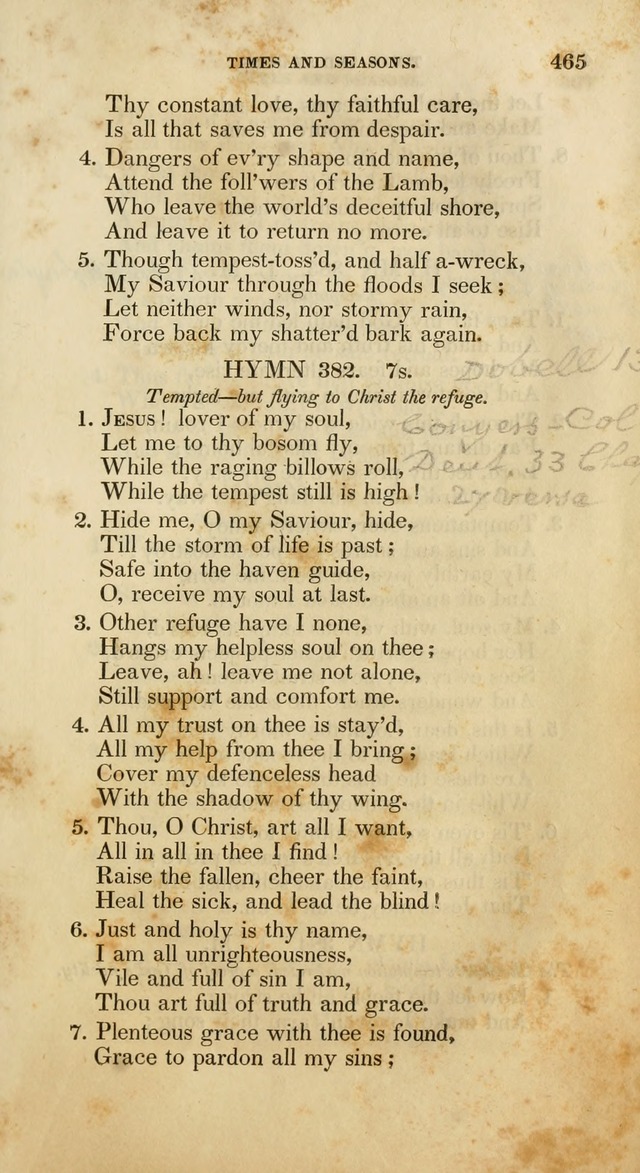 TIMES AND SEASONS. 465
Thy constant love, thy faithful care,
Is all that saves me from despair.
4. Dangers of ev'ry shape and name,
Attend the foll'wers of the Lamb,
Who leave the world's deceitful shore,
And leave it to return no more.
5. Though tempest-toss'd, and half a-wreck,
My Saviour through the floods I seek;
Let neither winds, nor stormy rain,
Force back my shatter'd bark again.
HYMN 382. 7s. Dobell 13
Tempted—but flying to Christ the refuge.
1. JESUS! lover of my soul,
Let me to thy bosom fly,
While the raging billows roll,
While the tempest still is high!
Col
Deut. 33 Cha
27 Verse
2. Hide me, O my Saviour, hide,
Till the storm of life is past;
Safe into the haven guide,
O, receive my soul at last.
3. Other refuge have I none,
Hangs my helpless soul on thee;
Leave, ah! leave me not alone,
Still support and comfort me.
4. All my trust on thee is stay'd,
All my help from thee I bring;
Cover my defenceless head
With the shadow of thy wing.
5. Thou, O Christ, art all I want,
All in all in thee I find!
Raise the fallen, cheer the faint,
Heal the sick, and lead the blind!
6. Just and holy is thy name,
I am all unrighteousness,
Vile and full of sin I am,
Thou art full of truth and grace.
7. Plenteous grace with thee is found,
Grace to pardon all my sins;